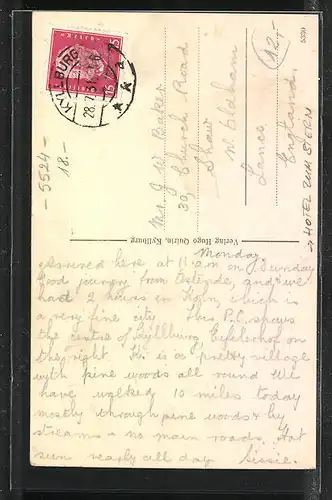 KYLLBURG
28.7.31
15
15
12,-
5391
- 5524 -
18.-
Mr J W Baker
30, Church Road
Shaw
nr Oldham
Lancs
England.
→ HOTEL ZUM STERN
Verlag Hugo Quirin, Kyllburg
Monday.
Arrived here at 11.am on Sunday
Good journey from Ostende, and we
had 2 hours in Köln which is
a very fine city. This P.C. shows
the centre of Kyllburg, Eifelerhof on
the right. It is a pretty village
with pine woods all round. We
have walked 10 miles today
mostly through pine woods & by
streams & no main roads. Hot
sun nearly all day. Lissie.